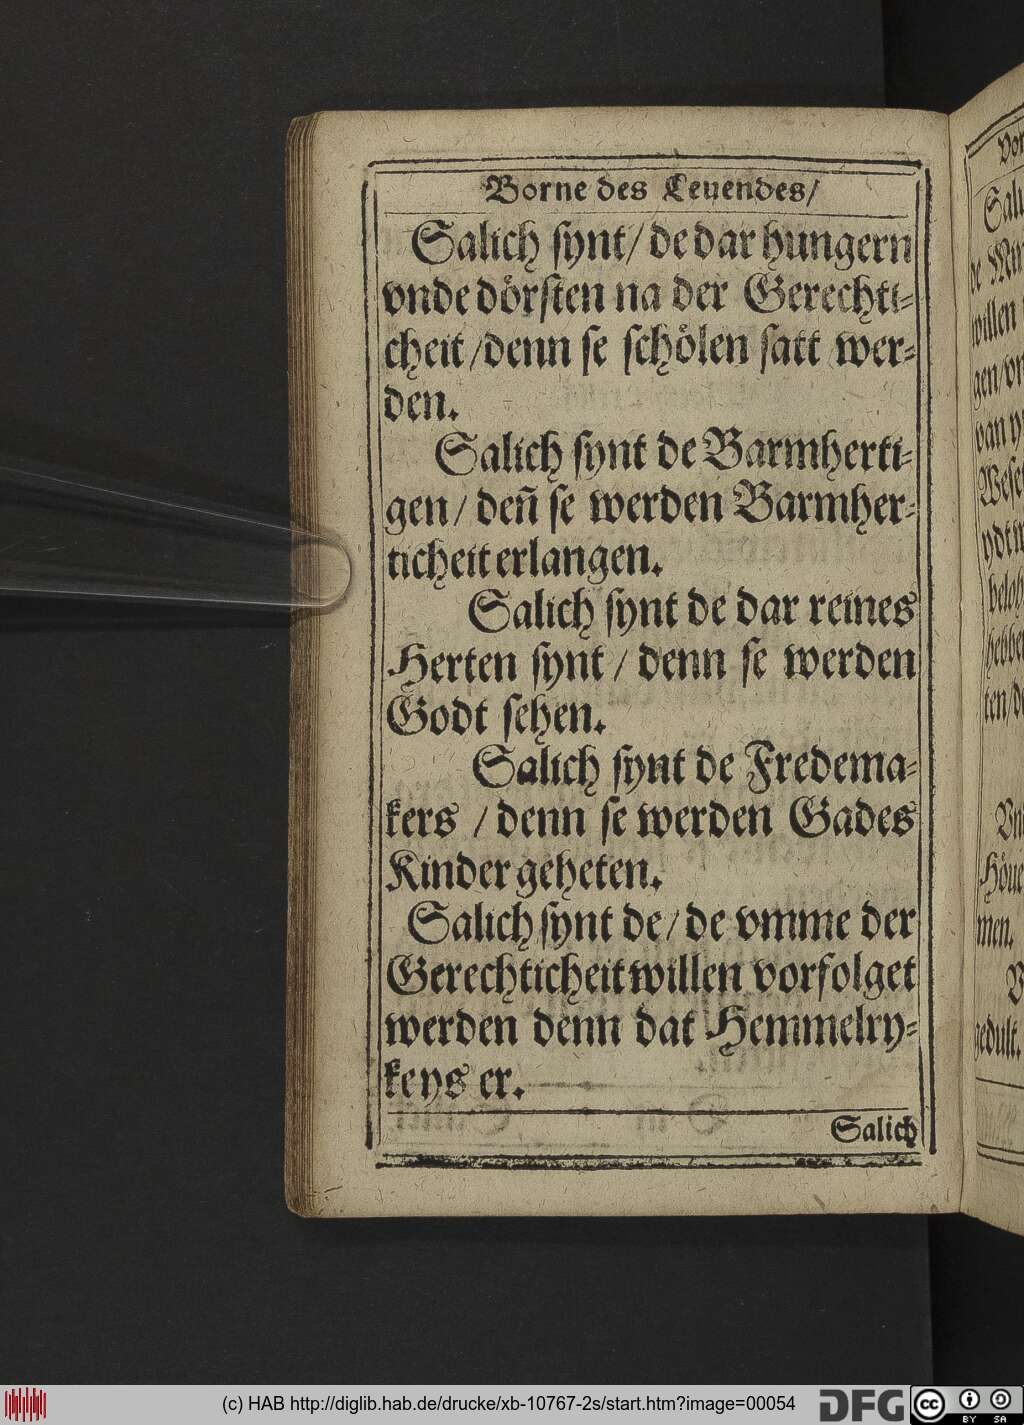 Borne des Leuendes/
Salich synt/ de dar hungern
vnde dörsten na der Gerechti-
cheit /denn se schölen satt wer-
den.
Salich synt de Barmherti-
gen/ deñ se werden Barmher-
ticheit erlangen.
Salich synt de dar reines
Herten synt / denn se werden
Godt sehen.
Salich synt de Fredema-
kers / denn se werden Gades
Kinder geheten.
Salich synt de/ de vmme der
Gerechticheit willen vorfolget
werden denn dat Hemmelry-
keys er.
Salich
willen
gen/
van
beloh
men.
gedult.
(c) HAB http://diglib.hab.de/drucke/xb-10767-2s/start.htm?image=00054
DFG
cc
BY SA